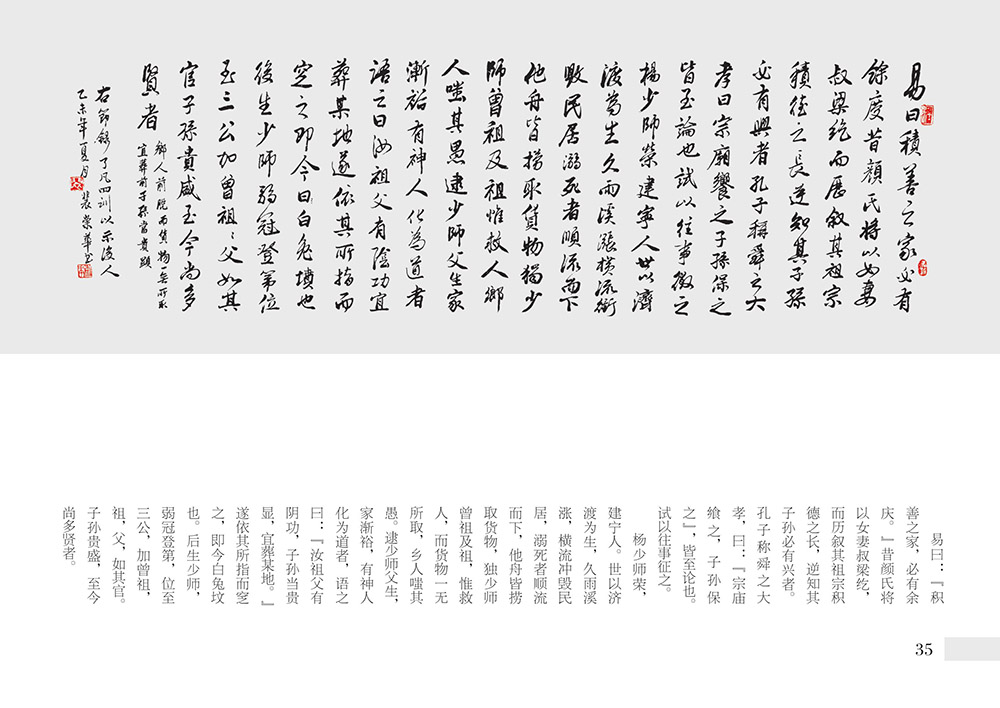 易曰積善之家必有
餘慶昔顏氏將以女妻
叔梁紇而歷叙其祖宗
積德之長逆知其子孫
必有興者孔子稱舜之大
孝曰宗廟饗之子孫保之
皆至論也試以往事徵之
楊少師榮建寧人世以濟
渡為生久雨溪漲橫流衝
毀民居溺死者順流而下
他舟皆撈取貨物獨少
師曾祖及祖惟救人鄉
人嗤其愚逮少師父生家
漸裕有神人化為道者
語之曰汝祖父有陰功宜
葬某地遂依其所指而
窆之即今日白兔墳也
後生少師弱冠登第位
至三公加曾祖〻父如其
官子孫貴盛至今尚多
賢者
鄉人前脫而貨物一無所取
宜葬前子孫當貴顯
右節錄了凡四訓以示後人
乙未年夏月 裴榮華書
易曰：『积
善之家，必有余
庆。』昔颜氏将
以女妻叔梁纥，
而历叙其祖宗积
德之长，逆知其
子孙必有兴者。
孔子称舜之大
孝，曰：『宗庙
飨之，子孙保
之』，皆至论也。
试以往事征之。
杨少师荣，
建宁人。世以济
渡为生，久雨溪
涨，横流冲毁民
居，溺死者顺流
而下，他舟皆捞
取货物，独少师
曾祖及祖，惟救
人，而货物一无
所取，乡人嗤其
愚。逮少师父生，
家渐裕，有神人
化为道者，语之
曰：『汝祖父有
阴功，子孙当贵
显，宜葬某地。』
遂依其所指而窆
之，即今白兔坟
也。后生少师，
弱冠登第，位至
三公，加曾祖，
祖，父，如其官。
子孙贵盛，至今
尚多贤者。
35